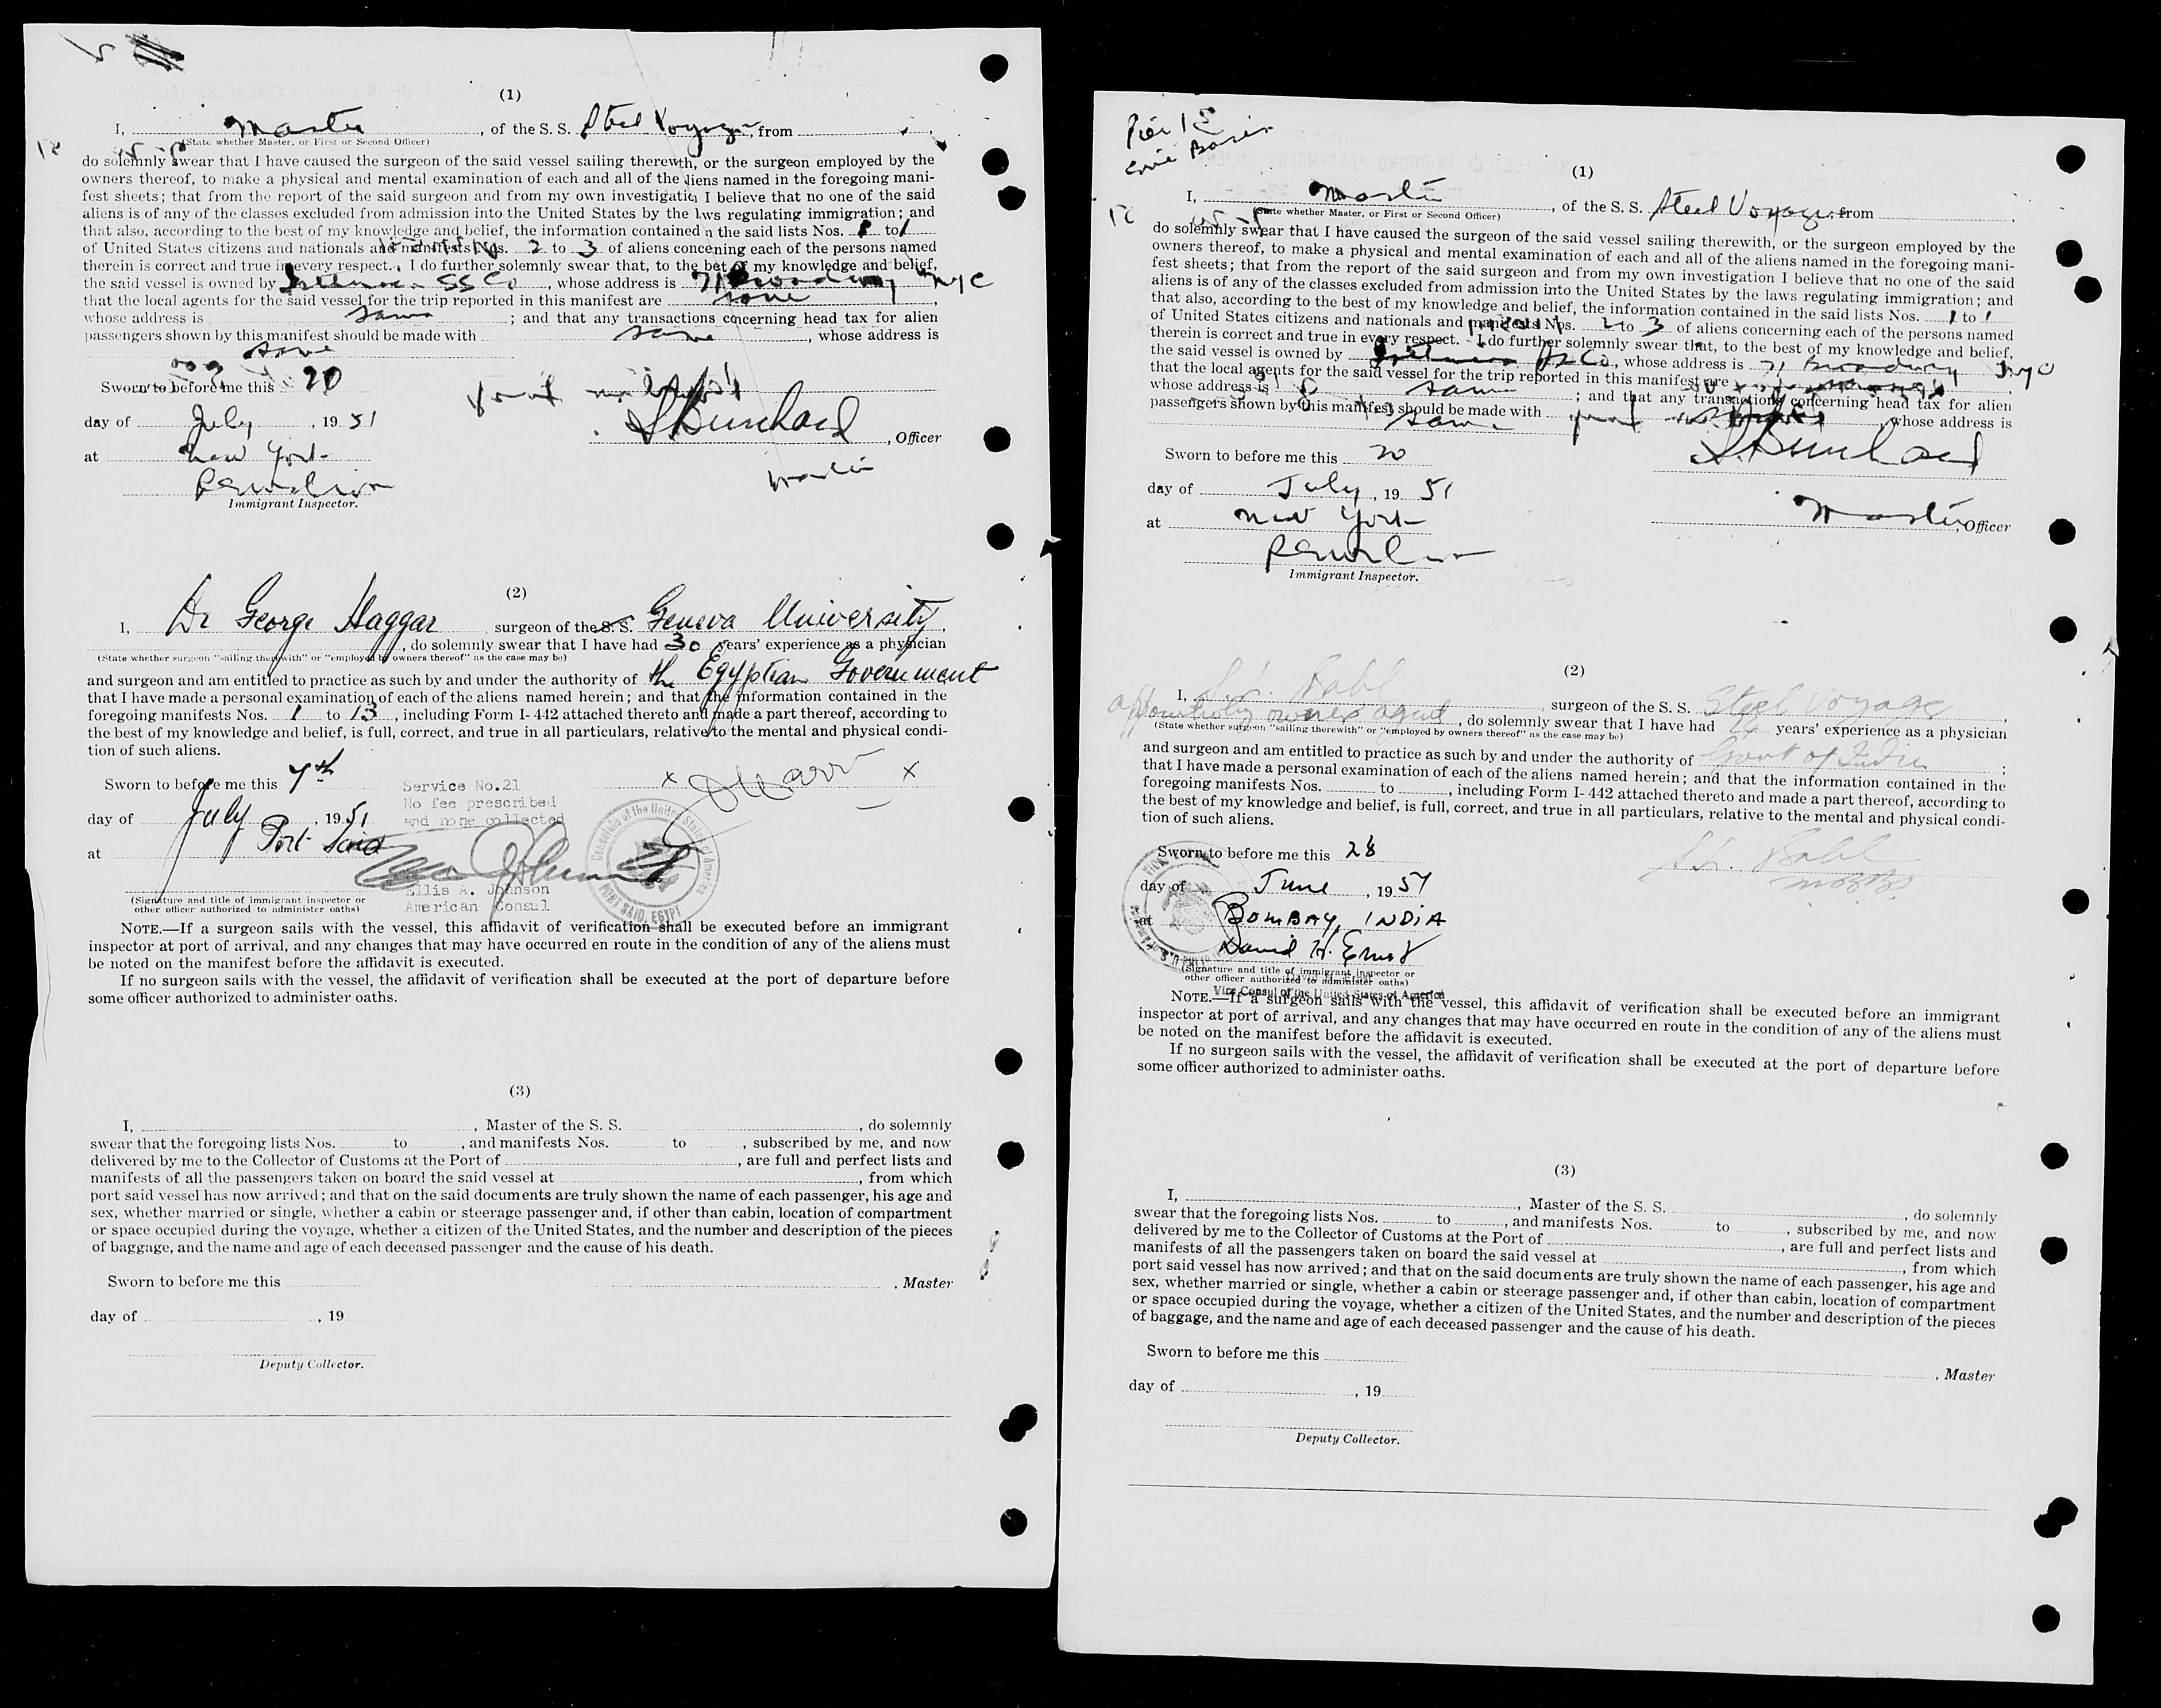 (1)
I, Master, of the S. S. Steel Voyager, from
(State whether Master, or First or Second Officer)
do solemnly swear that I have caused the surgeon of the said vessel sailing therewith, or the surgeon employed by the
owners thereof, to make a physical and mental examination of each and all of the aliens named in the foregoing mani-
fest sheets; that from the report of the said surgeon and from my own investigatin I believe that no one of the said
aliens is of any of the classes excluded from admission into the United States by the lws regulating immigration; and
that also, according to the best of my knowledge and belief, the information contained n the said lists Nos. 1 to 1
of United States citizens and nationals and manifests Nos. 2 to 3 of aliens concening each of the persons named
therein is correct and true in every respect. I do further solemnly swear that, to the bet of my knowledge and belief,
the said vessel is owned by SS Co, whose address is 71 Broadway NYC
that the local agents for the said vessel for the trip reported in this manifest are same,
whose address is same; and that any transactions concerning head tax for alien
passengers shown by this manifest should be made with same, whose address is
same
Sworn to before me this 20
day of July, 1951
, Officer
at New York
Master
Immigrant Inspector.
(2)
I, Dr George Haggar surgeon of the S. S. Geneva University,
, do solemnly swear that I have had 30 years' experience as a physician
(State whether surgeon "sailing therewith" or "employed by owners thereof" as the case may be)
and surgeon and am entitled to practice as such by and under the authority of the Egyptian Government
that I have made a personal examination of each of the aliens named herein; and that the information contained in the
foregoing manifests Nos. 1 to 13, including Form I-442 attached thereto and made a part thereof, according to
the best of my knowledge and belief, is full, correct, and true in all particulars, relative to the mental and physical condi-
tion of such aliens.
Sworn to before me this 7th
Service No.21
No fee prescribed
and none collected
x x
day of July, 1951
at Port Said
Ellis A. Johnson
American Consul
Consulate of the United States of America
PORT SAID, EGYPT
(Signature and title of immigrant inspector or
other officer authorized to administer oaths)
NOTE.—If a surgeon sails with the vessel, this affidavit of verification shall be executed before an immigrant
inspector at port of arrival, and any changes that may have occurred en route in the condition of any of the aliens must
be noted on the manifest before the affidavit is executed.
If no surgeon sails with the vessel, the affidavit of verification shall be executed at the port of departure before
some officer authorized to administer oaths.
(3)
I, , Master of the S. S. , do solemnly
swear that the foregoing lists Nos. to , and manifests Nos. to , subscribed by me, and now
delivered by me to the Collector of Customs at the Port of , are full and perfect lists and
manifests of all the passengers taken on board the said vessel at , from which
port said vessel has now arrived; and that on the said documents are truly shown the name of each passenger, his age and
sex, whether married or single, whether a cabin or steerage passenger and, if other than cabin, location of compartment
or space occupied during the voyage, whether a citizen of the United States, and the number and description of the pieces
of baggage, and the name and age of each deceased passenger and the cause of his death.
Sworn to before me this , Master
day of , 19
Deputy Collector.
Pier 15
Erie Basin
(1)
I, Master, of the S. S. Steel Voyager, from
(State whether Master, or First or Second Officer)
do solemnly swear that I have caused the surgeon of the said vessel sailing therewith, or the surgeon employed by the
owners thereof, to make a physical and mental examination of each and all of the aliens named in the foregoing mani-
fest sheets; that from the report of the said surgeon and from my own investigation I believe that no one of the said
aliens is of any of the classes excluded from admission into the United States by the laws regulating immigration; and
that also, according to the best of my knowledge and belief, the information contained in the said lists Nos. 1 to 1
of United States citizens and nationals and manifests Nos. 2 to 3 of aliens concerning each of the persons named
therein is correct and true in every respect. I do further solemnly swear that, to the best of my knowledge and belief,
the said vessel is owned by SS Co, whose address is 71 Broadway NYC
that the local agents for the said vessel for the trip reported in this manifest are
whose address is same; and that any transactions concerning head tax for alien
passengers shown by this manifest should be made with same, whose address is
Sworn to before me this 20
day of July, 1951
at New York
Master, Officer
Immigrant Inspector.
(2)
I, surgeon of the S. S. Steel Voyager,
owners agent, do solemnly swear that I have had years' experience as a physician
(State whether surgeon "sailing therewith" or "employed by owners thereof" as the case may be)
and surgeon and am entitled to practice as such by and under the authority of Govt of India;
that I have made a personal examination of each of the aliens named herein; and that the information contained in the
foregoing manifests Nos. to , including Form I-442 attached thereto and made a part thereof, according to
the best of my knowledge and belief, is full, correct, and true in all particulars, relative to the mental and physical condi-
tion of such aliens.
Sworn to before me this 28
day of June, 1951
at BOMBAY, INDIA
David H. Ernst
(Signature and title of immigrant inspector or
other officer authorized to administer oaths)
Vice Consul of the United States of America
NOTE.—If a surgeon sails with the vessel, this affidavit of verification shall be executed before an immigrant
inspector at port of arrival, and any changes that may have occurred en route in the condition of any of the aliens must
be noted on the manifest before the affidavit is executed.
If no surgeon sails with the vessel, the affidavit of verification shall be executed at the port of departure before
some officer authorized to administer oaths.
(3)
I, , Master of the S. S. , do solemnly
swear that the foregoing lists Nos. to , and manifests Nos. to , subscribed by me, and now
delivered by me to the Collector of Customs at the Port of , are full and perfect lists and
manifests of all the passengers taken on board the said vessel at , from which
port said vessel has now arrived; and that on the said documents are truly shown the name of each passenger, his age and
sex, whether married or single, whether a cabin or steerage passenger and, if other than cabin, location of compartment
or space occupied during the voyage, whether a citizen of the United States, and the number and description of the pieces
of baggage, and the name and age of each deceased passenger and the cause of his death.
Sworn to before me this
, Master
day of , 19
Deputy Collector.